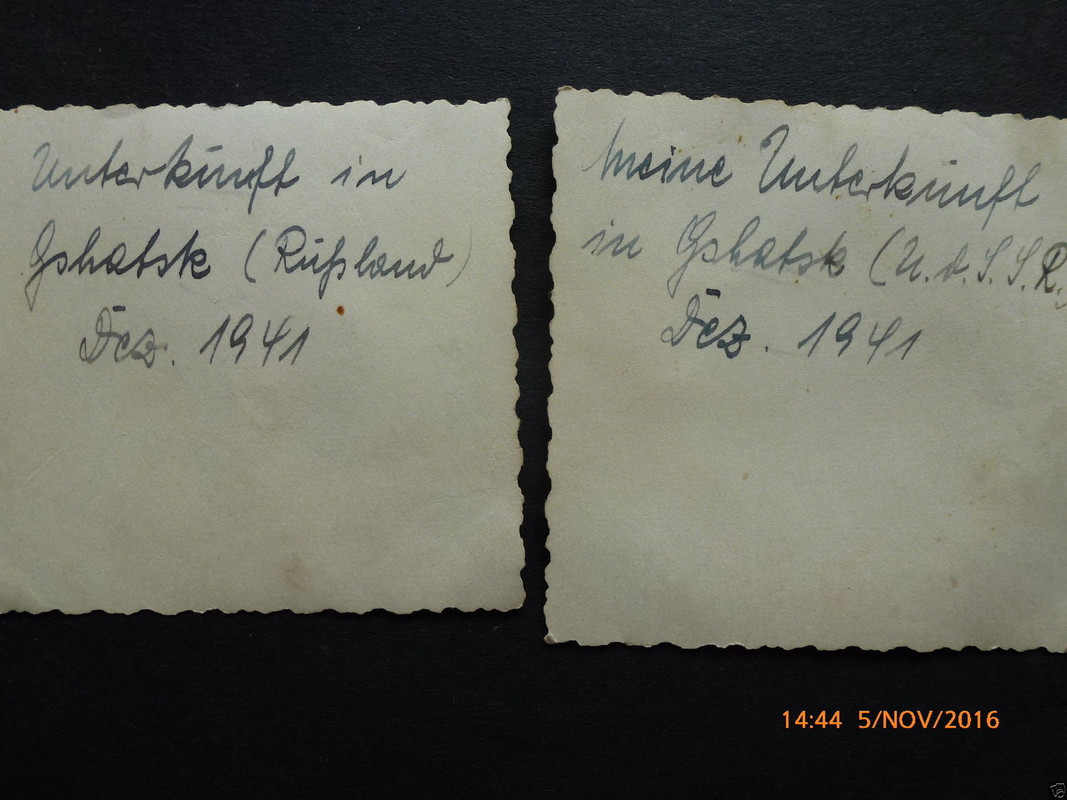 Unterkunft in
Gshatsk (Rußland)
Dez. 1941
Meine Unterkunft
in Gshatsk (U.d.S.S.R.)
Dez. 1941
14:44 5/NOV/2016